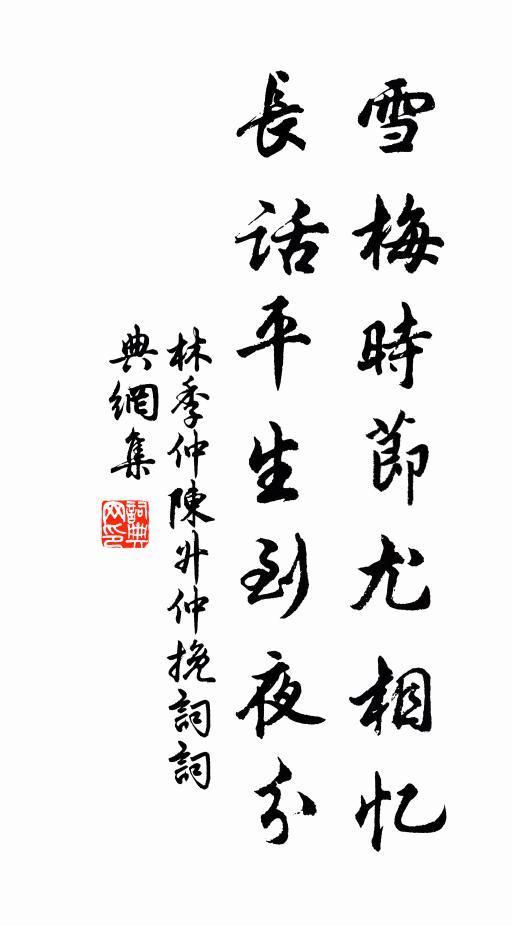 雪梅時節尤相忆
長話平生到夜分
林季仲陳升仲挽詞詞
典網集
詞典
网印